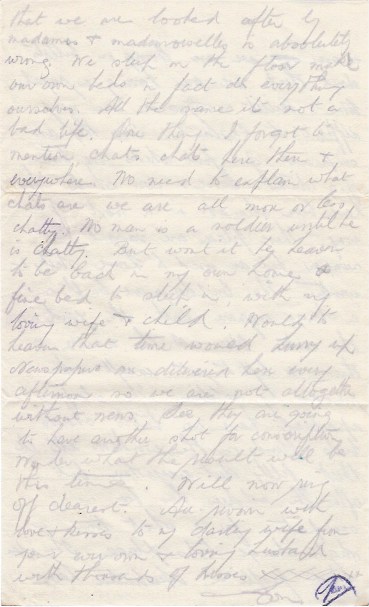 that we are looked after by
madames & madamoselles is absolutely
wrong. We sleep on the floor make
our own beds in fact do everything
ourselves. All the same it's not a
bad life. One thing I forgot to
mention, chats chats here there &
everywhere. No need to explain what
chats are we are all more or less
chatty. No man is a soldier until he
is chatty. But wont it be heaven
to be back in my own home, a
fine bed to sleep in, with my
loving wife & child. Would to
heaven that time would hurry up
Newspapers are delivered here every
afternoon so we are not altogether
without news. See they are going
to have another shot for conscription
Wonder what the result will be
this time. Will now ring
off dearest. Au revoir with
love & kisses to my darling wife from
your very own & loving husband
with thousands of kisses xxxxxx